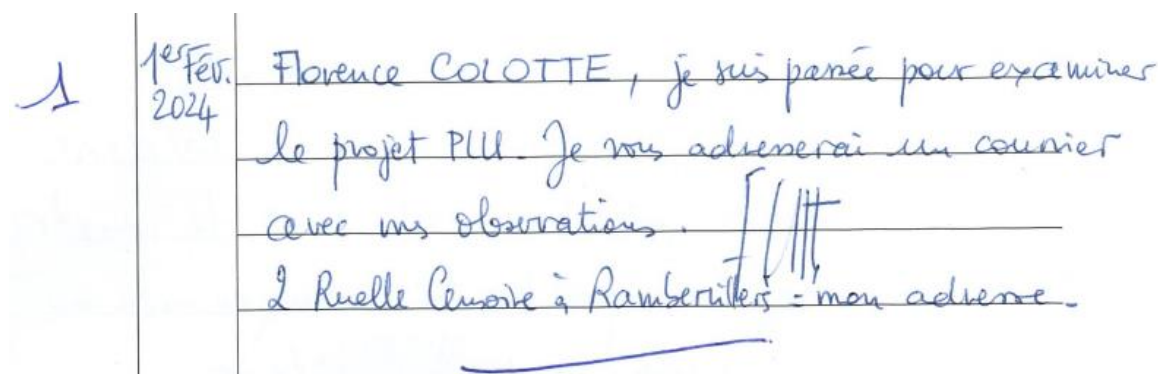 1
1er Fév.
2024
Florence COLOTTE, je suis passée pour examiner
le projet PLU. Je vous adresserai un courrier
avec mes observations.
2 Ruelle à Rambervillers = mon adresse.